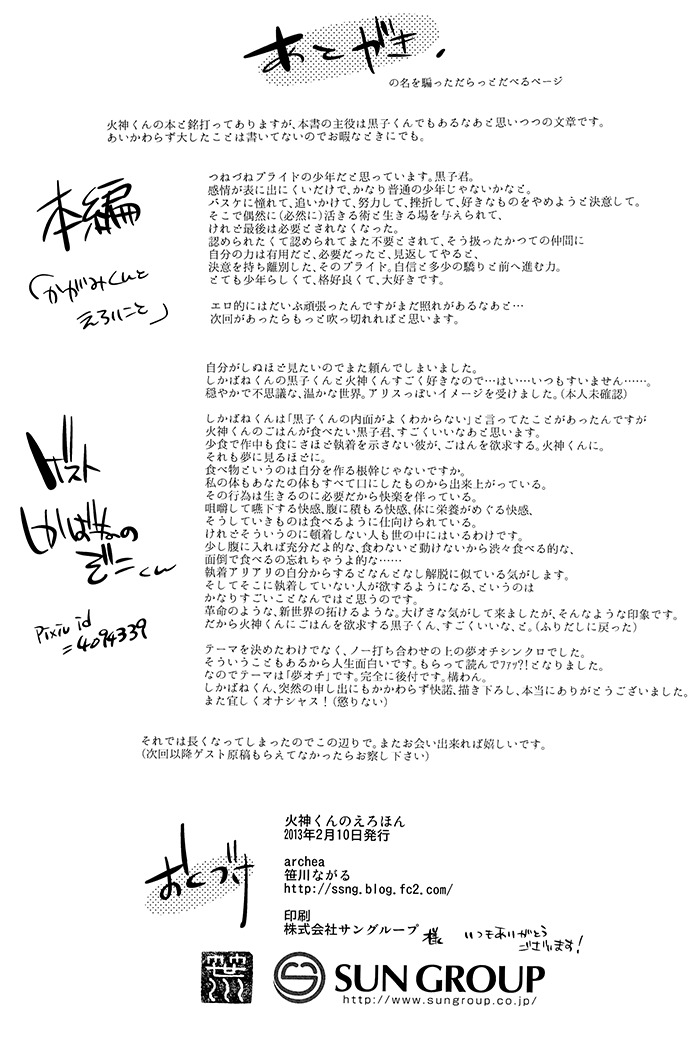 あとがき.
の名を騙っただらっとだべるページ
火神くんの本と銘打ってありますが、本書の主役は黒子くんでもあるなあと思いつつの文章です。
あいかわらず大したことは書いてないのでお暇なときにでも。
本編
「かがみくんと
えろいこと」
つねづねプライドの少年だと思っています。黒子君。
感情が表に出にくいだけで、かなり普通の少年じゃないかなと。
バスケに憧れて、追いかけて、努力して、挫折して、好きなものをやめようと決意して。
そこで偶然に(必然に)活きる術と生きる場を与えられて、
けれど最後は必要とされなくなった。
認められたくて認められてまた不要とされて、そう扱ったかつての仲間に
自分の力は有用だと、必要だったと、見返してやると、
決意を持ち離別した、そのプライド。自信と多少の驕りと前へ進む力。
とても少年らしくて、格好良くて、大好きです。
エロ的にはだいぶ頑張ったんですがまだ照れがあるなあと…
次回があったらもっと吹っ切れればと思います。
ゲスト
しかばねの
ぞにくん
Pixiv id
=4094339
自分がしぬほど見たいのでまた頼んでしまいました。
しかばねくんの黒子くんと火神くんすごく好きなので…はい…いつもすいません……。
穏やかで不思議な、温かな世界。アリスっぽいイメージを受けました。(本人未確認)
しかばねくんは「黒子くんの内面がよくわからない」と言ってたことがあったんですが
火神くんのごはんが食べたい黒子君、すごくいいなあと思います。
少食で作中も食にさほど執着を示さない彼が、ごはんを欲求する。火神くんに。
それも夢に見るほどに。
食べ物というのは自分を作る根幹じゃないですか。
私の体もあなたの体もすべて口にしたものから出来上がっている。
その行為は生きるのに必要だから快楽を伴っている。
咀嚼して嚥下する快感、腹に積もる快感、体に栄養がめぐる快感、
そうしていきものは食べるように仕向けられている。
けれどそういうのに頓着しない人も世の中にはいるわけです。
少し腹に入れば充分だよ的な、食わないと動けないから渋々食べる的な、
面倒で食べるの忘れちゃうよ的な……
執着アリアリの自分からするとなんとなし解脱に似ている気がします。
そしてそこに執着していない人が欲するようになる、というのは
かなりすごいことなんではと思うのです。
革命のような、新世界の拓けるような。大げさな気がして来ましたが、そんなような印象です。
だから火神くんにごはんを欲求する黒子くん、すごくいいな、と。(ふりだしに戻った)
テーマを決めたわけでなく、ノー打ち合わせの上の夢オチシンクロでした。
そういうこともあるから人生面白いです。もらって読んでﾌｧｯ?!となりました。
なのでテーマは「夢オチ」です。完全に後付です。構わん。
しかばねくん、突然の申し出にもかかわらず快諾、描き下ろし、本当にありがとうございました。
また宜しくオナシャス!(懲りない)
それでは長くなってしまったのでこの辺りで。またお会い出来れば嬉しいです。
(次回以降ゲスト原稿もらえてなかったらお察し下さい)
おくづけ
火神くんのえろほん
2013年2月10日発行
archea
笹川ながる
http://ssng.blog.fc2.com/
印刷
株式会社サングループ 様 いつもありがとう
ございます!
笹川
SUN GROUP
http://www.sungroup.co.jp/